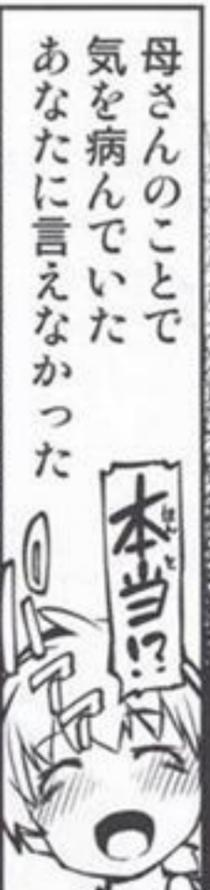 母さんのことで
気を病んでいた
あなたに言えなかった
本当!?
ほんと